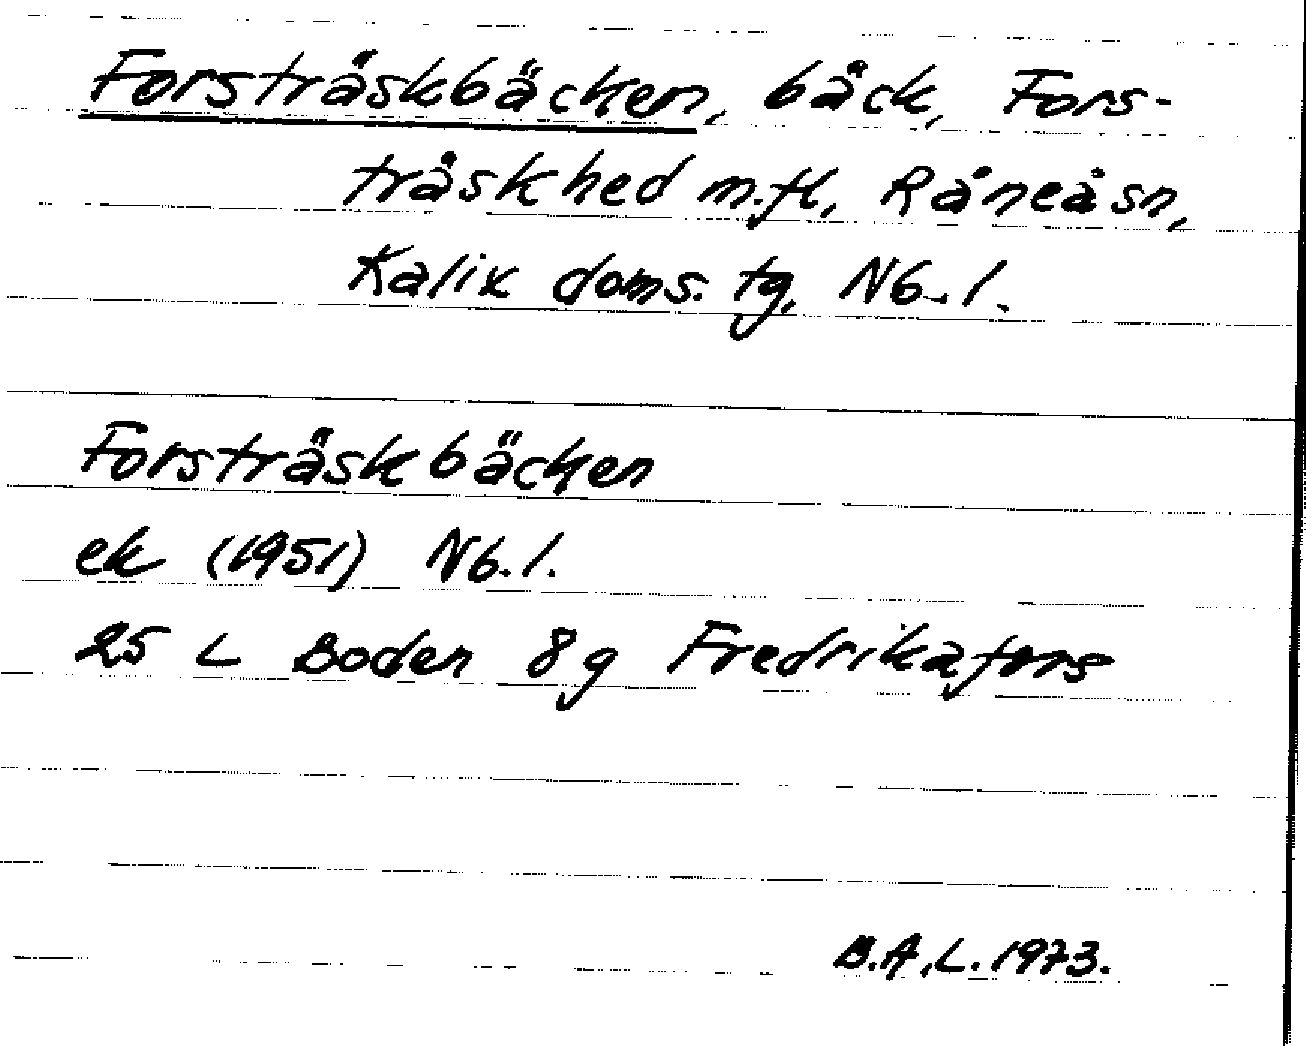 Forsträskbäcken, bäck, Fors-
träskhed m.fl., Råneå sn,
Kalix doms. tg, Nb. l.
Forsträskbäcken
ek (1951) Nb. l.
25 L Boden 8 g Fredrikafors
B.A.L. 1973.